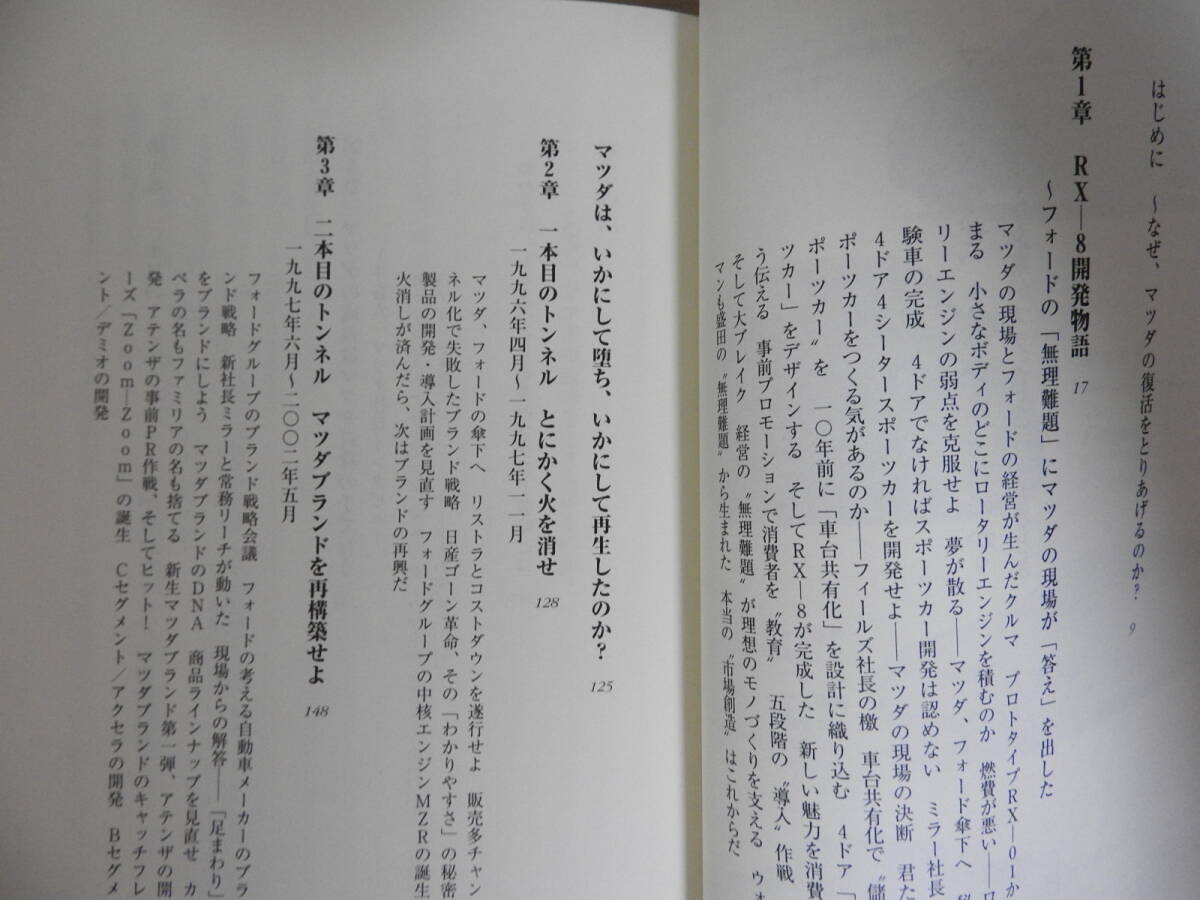 はじめに 〜なぜ、マツダの復活をとりあげるのか? 9
第1章 RX―8開発物語 17
〜フォードの「無理難題」にマツダの現場が「答え」を出した
マツダの現場とフォードの経営が生んだクルマ プロトタイプRX―01か
まる 小さなボディのどこにロータリーエンジンを積むのか 燃費が悪い――ロ
リーエンジンの弱点を克服せよ 夢が散る――マツダ、フォード傘下へ
験車の完成 4ドアでなければスポーツカー開発は認めない ミラー社長
4ドア4シータースポーツカーを開発せよ――マツダの現場の決断 君た
ポーツカーをつくる気があるのか――フィールズ社長の檄 車台共有化で〝儲
ポーツカー〟を 一〇年前に「車台共有化」を設計に織り込む 4ドア「
ツカー」をデザインする そしてRX―8が完成した 新しい魅力を消費
う伝える 事前プロモーションで消費者を〝教育〟 五段階の〝導入〟作戦
そして大ブレイク 経営の〝無理難題〟が理想のモノづくりを支える ウォ
マンも盛田の〝無理難題〟から生まれた 本当の〝市場創造〟はこれからだ
マツダは、いかにして堕ち、いかにして再生したのか? 125
第2章 一本目のトンネル とにかく火を消せ 128
一九九六年四月〜一九九七年一一月
マツダ、フォードの傘下へ リストラとコストダウンを遂行せよ 販売多チャン
ネル化で失敗したブランド戦略 日産ゴーン革命、その「わかりやすさ」の秘密
製品の開発・導入計画を見直す フォードグループの中核エンジンMZRの誕生
火消しが済んだら、次はブランドの再興だ
第3章 二本目のトンネル マツダブランドを再構築せよ 148
一九九七年六月〜二〇〇二年五月
フォードグループのブランド戦略会議 フォードの考える自動車メーカーのブラ
ンド戦略 新社長ミラーと常務リーチが動いた 現場からの解答――「足まわり」
をブランドにしよう マツダブランドのDNA 商品ラインナップを見直せ カ
ペラの名もファミリアの名も捨てる 新生マツダブランド第一弾、アテンザの開
発 アテンザの事前PR作戦、そしてヒット! マツダブランドのキャッチフレ
ーズ「Zoom―Zoom」の誕生 Cセグメント/アクセラの開発 Bセグメ
ント/デミオの開発